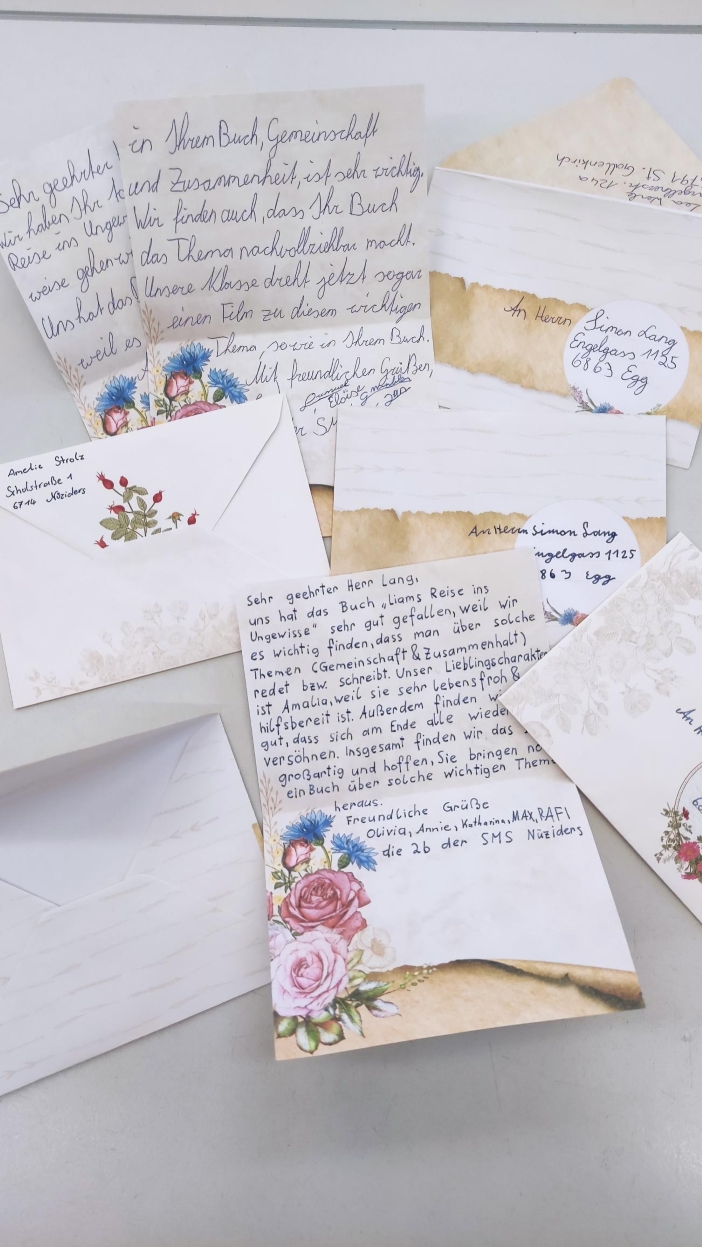 Sehr geehrter
Wir haben Ihr
Reise ins
weise gehen
Uns hat das
weil es
in Ihrem Buch, Gemeinschaft
und Zusammenheit, ist sehr wichtig.
Wir finden auch, dass Ihr Buch
das Thema nachvollziehbar macht.
Unsere Klasse dreht jetzt sogar
einen Film zu diesem wichtigen
Thema, sowie in Ihrem Buch.
Mit freundlichen Grüßen,
Eloise
6791 St. Gallenkirch
An Herrn
Simon Lang
Engelgass 1125
6863 Egg
Amelie Strolz
Schulstraße 1
6714 Nüziders
An Herrn Simon Lang
ngelgass 1125
863 Egg
Sehr geehrter Herr Lang,
uns hat das Buch „Liams Reise ins
Ungewisse“ sehr gut gefallen, weil wir
es wichtig finden, dass man über solche
Themen (Gemeinschaft & Zusammenhalt)
redet bzw. schreibt. Unser Lieblingscharakter
ist Amalia, weil sie sehr lebensfroh &
hilfsbereit ist. Außerdem finden wi
gut, dass sich am Ende alle wieder
versöhnen. Insgesamt finden wir das
großartig und hoffen, Sie bringen no
ein Buch über solche wichtigen Theme
heraus.
Freundliche Grüße
Olivia, Annie, Katharina, MAX, RAFI
die 2b der SMS Nüziders
An